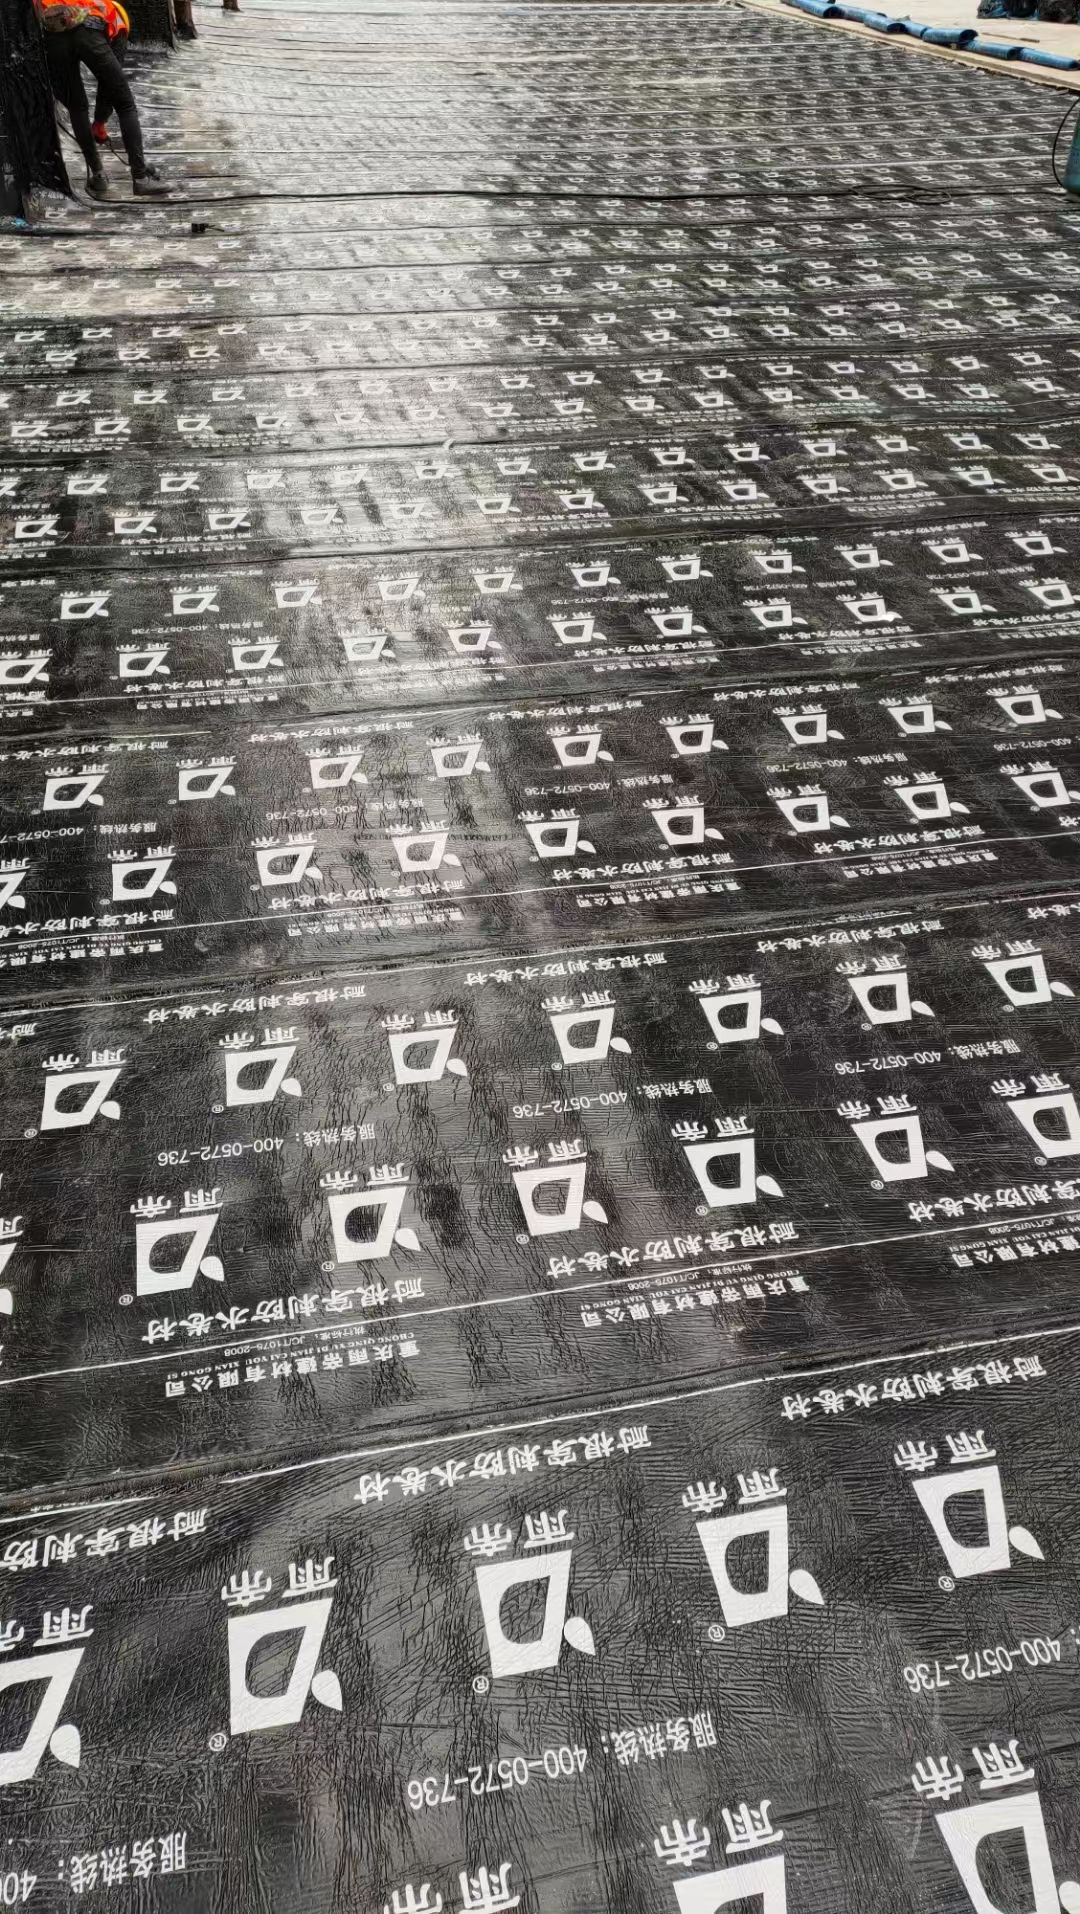 耐根穿刺防水卷材
雨帝
®
服务热线：400-0572-736
雨帝
®
耐根穿刺防水卷材
执行标准：JC/T1075-2008
CHONG QING YU DI JIAN CAI YOU XIAN GONG SI
重庆雨帝建材有限公司